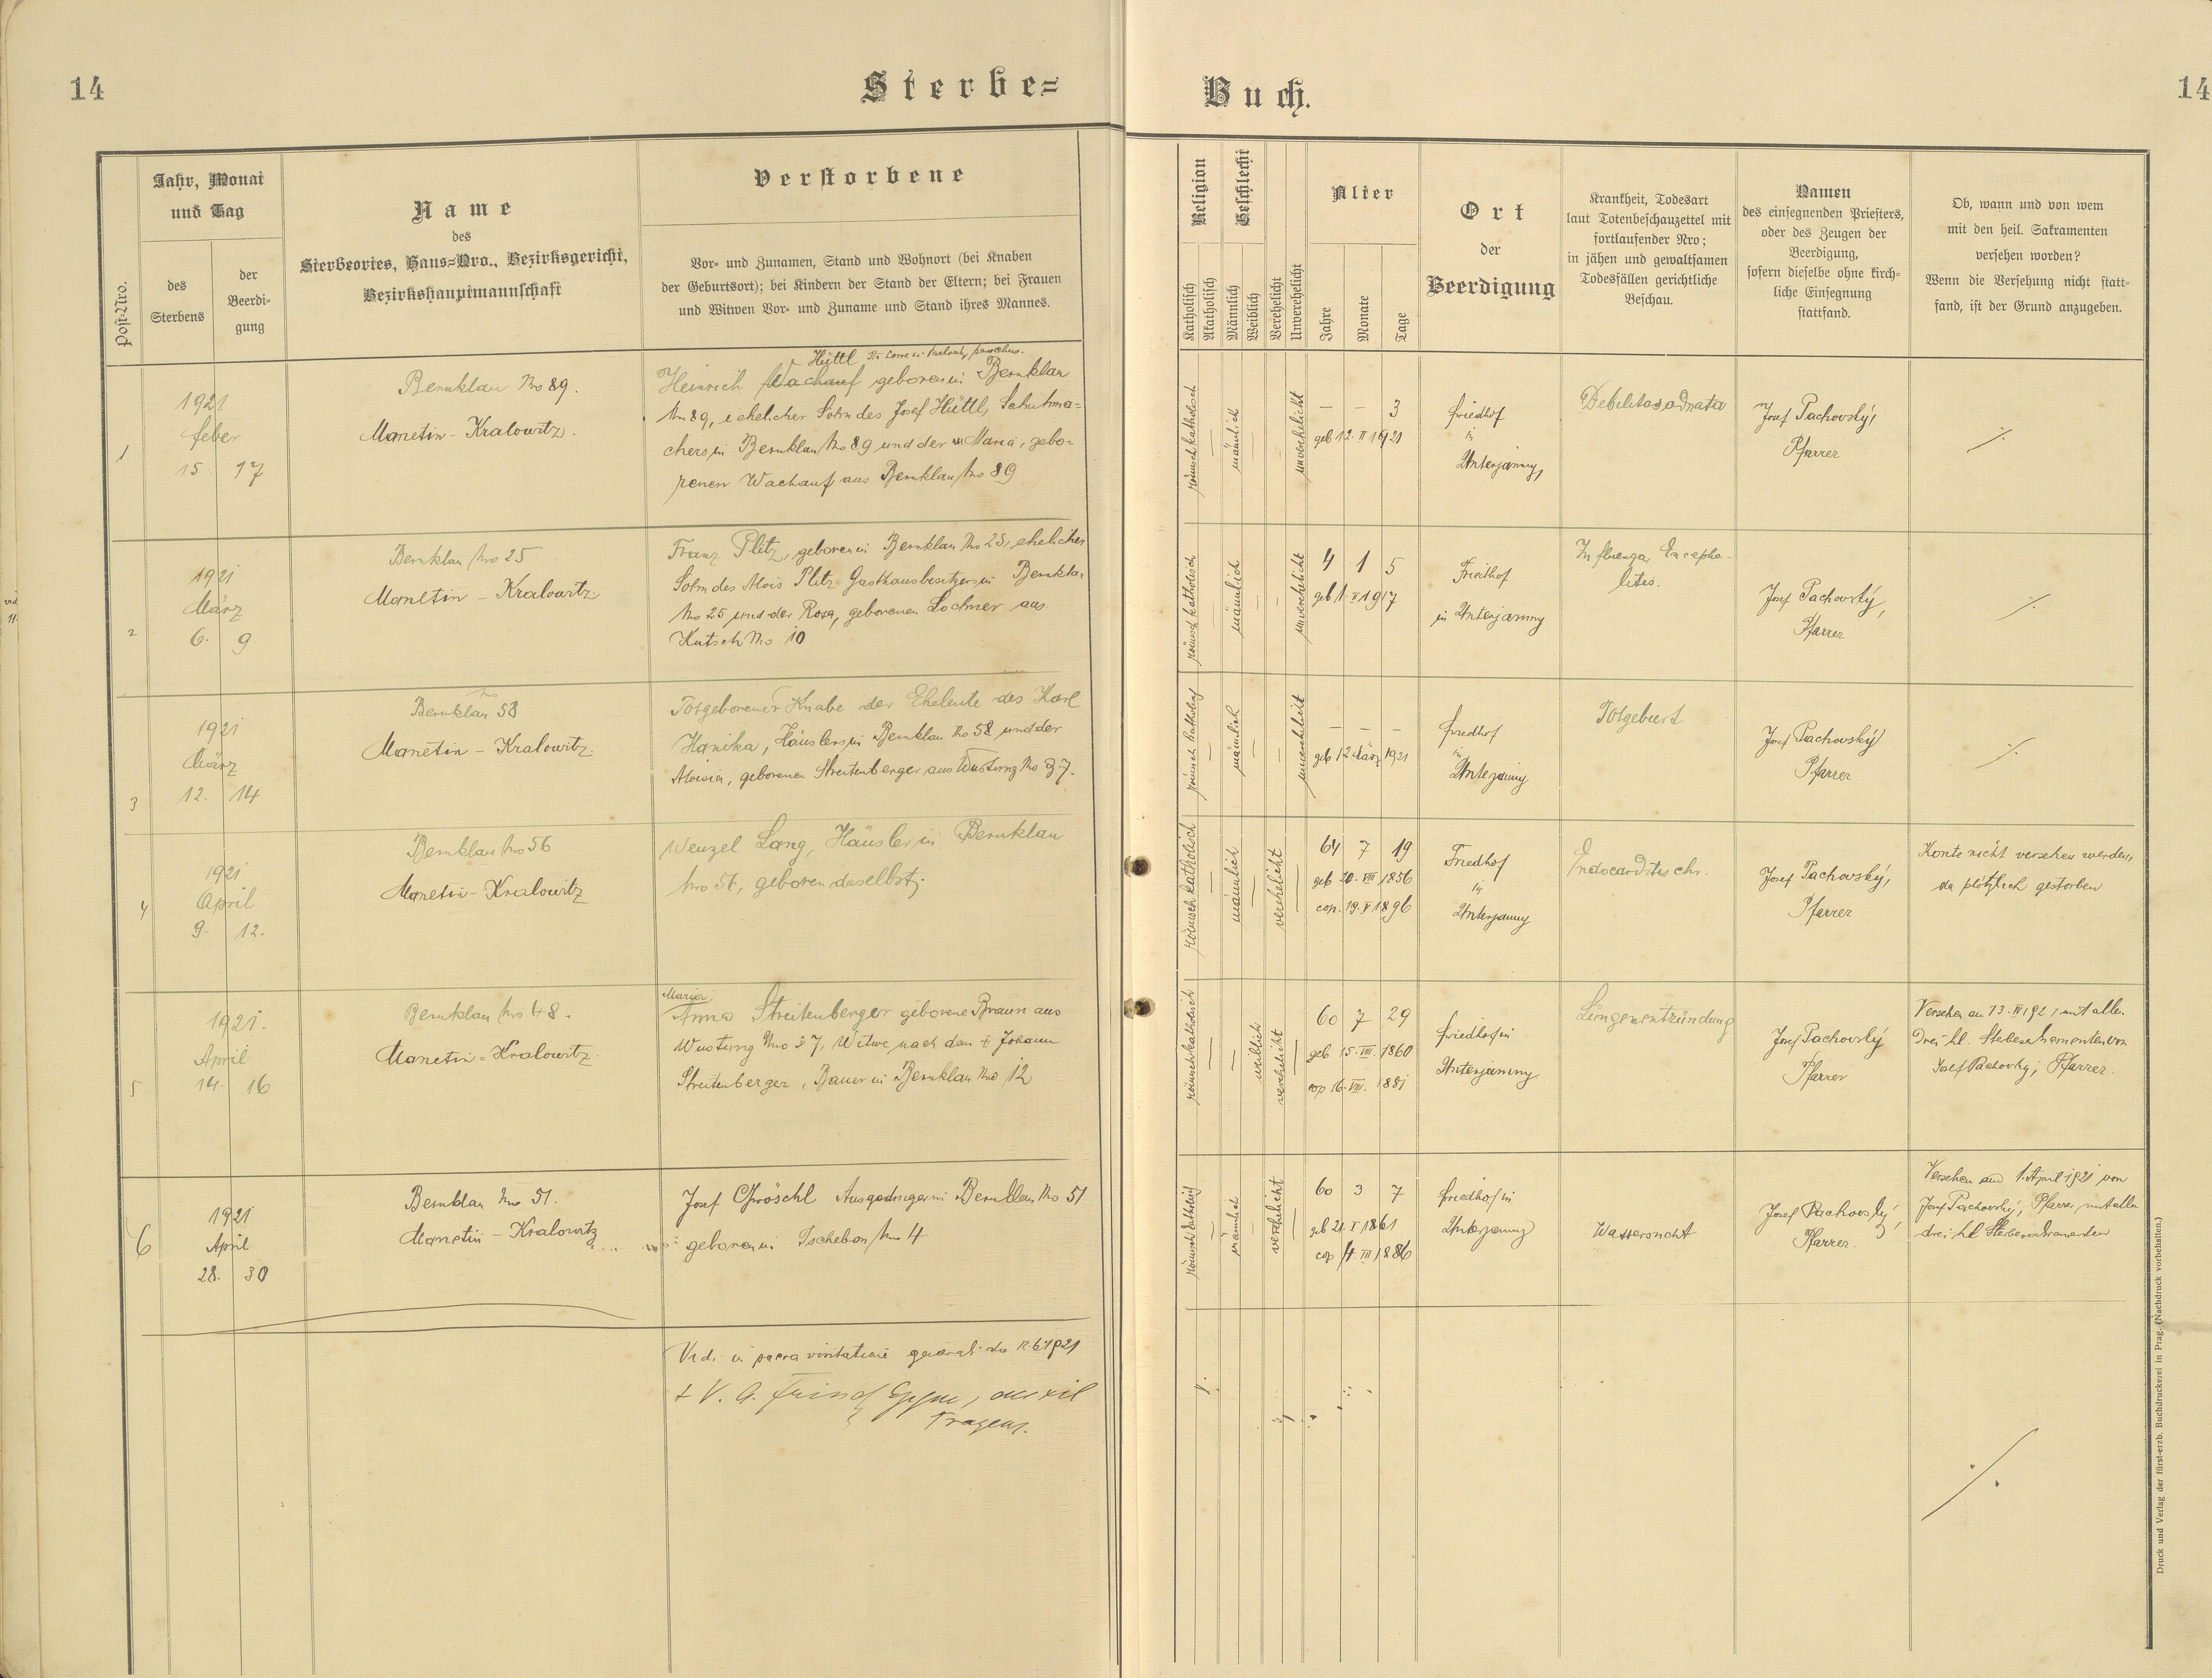 14
Sterbe=
Buch.
14
Post-Nro.
Jahr, Monat
und Tag
des
Sterbens
der
Beerdi-
gung
Name
des
Sterbeortes, Haus=Nro., Bezirksgericht,
Bezirkshauptmannschaft
Verstorbene
Vor- und Zunamen, Stand und Wohnort (bei Knaben
der Geburtsort); bei Kindern der Stand der Eltern; bei Frauen
und Witwen Vor- und Zuname und Stand ihres Mannes.
Religion
Katholisch
Akatholisch
Geschlecht
Männlich
Weiblich
Verehelicht
Unverehelicht
Alter
Jahre
Monate
Tage
Ort
der
Beerdigung
Krankheit, Todesart
laut Totenbeschauzettel mit
fortlaufender Nro;
in jähen und gewaltsamen
Todesfällen gerichtliche
Beschau.
Namen
des einsegnenden Priesters,
oder des Zeugen der
Beerdigung,
sofern dieselbe ohne kirch-
liche Einsegnung
stattfand.
Ob, wann und von wem
mit den heil. Sakramenten
versehen worden?
Wenn die Versehung nicht statt-
fand, ist der Grund anzugeben.
1
1921
feber
15. 17
Bernklau Nro 89.
Manetin - Kralowitz.
Hüttl
Heinrich Wachauf geboren in Bernklau
Nro 89, ehelicher Sohn des Josef Hüttl, Schuhma=
chers in Bernklau Nro 89 und der Maria, gebo=
renen Wachauf aus Bernklau Nro 89
römisch katholisch
männlich
unverehelicht
— — 3
geb 12. II 1921
friedhof
in
Unterjamny,
Debilitas adnata
Josef Pachovský,
Pfarrer
2
1921
März
6. 9
Bernklau Nro 25
Manetin - Kralowitz
Franz Plitz, geboren in Bernklau Nro 25, ehelicher
Sohn des Alois Plitz Gasthausbesitzers in Bernklau
Nro 25 und der Rosa, geborenen Lochner aus
Kutsch Nro 10
römisch katholisch
männlich
unverehelicht
4 1 5
geb 1. II 1917
Friedhof
in Unterjamny
Influenza, Encepha-
litis.
Josef Pachovský,
Pfarrer
3
1921
März
12. 14
Nro
Bernklau 58
Manetin - Kralowitz.
Totgeborener Knabe der Eheleute des Karl
Hanika, Häuslers in Bernklau Nro 58 und der
Aloisia, geborenen Streitenberger aus Wustung Nro 37.
römisch katholisch
männlich
unverehelicht
— — —
geb 12 März 1921
friedhof
in
Unterjamny
Totgeburt
Josef Pachovský
Pfarrer
4
1921
April
9. 12.
Bernklau Nro 56
Manetin - Kralowitz
Wenzel Lang, Häusler in Bernklau
Nro 56, geboren daselbst.
römisch katholisch
männlich
verehelicht
64 7 19
geb 20. VIII 1856
cop. 19. V 1896
Friedhof
in
Unterjamny
Endocarditis chr.
Josef Pachovský,
Pfarrer
Konte nicht versehen werden,
da plötzlich gestorben
5
1921.
April
14. 16
Bernklau Nro 48.
Manetin - Kralowitz.
Maria
Anna Streitenberger geborene Braun aus
Wustung Nro 37, Witwe nach dem † Johann
Streitenberger, Bauer in Bernklau Nro 12
römisch katholisch
weiblich
verehelicht
60 7 29
geb 15. VIII. 1860
cop 16. VIII. 1881
friedhof in
Unterjamny
Lungenentzündung
Josef Pachovský
Pfarrer
Versehen am 13. IV 1921 mit allen
drei hl. Sterbesakramenten von
Josef Pachovský, Pfarrer.
6
1921
April
28. 30
Bernklau Nro 51.
Manetin - Kralowitz
Josef Gröschl Ausgedinger in Bernklau Nro 51
geboren in Tschebon Nro 4
römisch katholisch
männlich
verehelicht
60 3 7
geb 21. I 1861
cop 4. III 1886
friedhof in
Unterjamny
Wassersucht
Josef Pachovský,
Pfarrer.
Versehen am 1. April 1921 von
Josef Pachovský, Pfarrer mit allen
drei hl Sterbesakramenten
Vidi in sacra visitatione generali die 12 6 1921
+ V. A. Frind Eppus, auxil
Pragens.
Druck und Verlag der fürst-erzb. Buchdruckerei in Prag. (Nachdruck vorbehalten.)